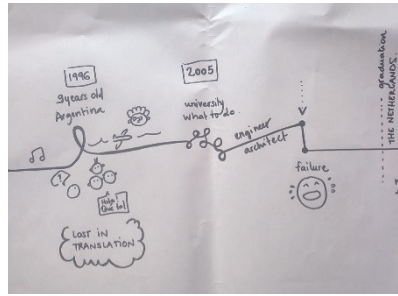 1996
9 years old
Argentina
Hola
Que tal
LOST IN
TRANSLATION
2005
university
what to do
engineer
architect
failure
graduation
THE NETHERLANDS